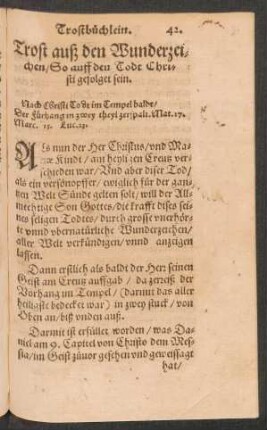 Trostbüchlein. 42.
Trost auß den Wunderzei-
chen/So auff den Todt Chri-
sti gefolget sein.
Nach Christi Todt im Tempel baldt/
Der Fürhang in zwey theyl zerspalt. Mat. 27.
Marc. 15. Luc. 23.
Als nun der Her Christus/vnd Ma-
rie Kindt/am heyligen Creutz ver-
schieden war/Vnd aber diser Tod/
als ein versönopffer/ewiglich für der gan-
tzen Welt Sünde gelten solt/will der All-
mechtige Son Gottes/die krafft dises sei-
nes seligen Todtes/durch grosse vnerhör-
te vnnd vbernatürliche Wunderzeichen/
aller Welt verkündigen/vnnd anzeigen
lassen.
Dann erstlich als baldt der Her: seinen
Geist am Creutz auffgab/da zerreiß der
Vorhang im Tempel/(darmit das aller
heiligste bedeckt war) in zwey stuck/von
Oben an/biß vnden auß.
Darmit ist erfüllet worden/was Da-
niel am 9. Capitel von Christo dem Mes-
sia/im Geist zůuor gesehen vnd geweissagt
hat/